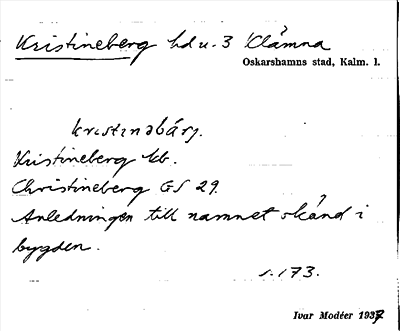 Kristineberg hd u. 3 Klämna
Oskarshamns stad, Kalm. l.
kristinəbärj.
Kristineberg kb.
Christineberg GS 29.
Anledningen till namnet okänd i
bygden.
s. 173.
Ivar Modéer 1937